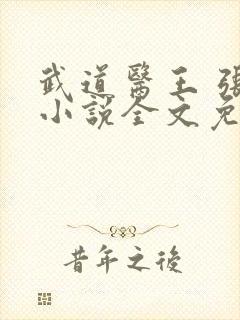 武道醫王 張
小說全文免
昔年之後